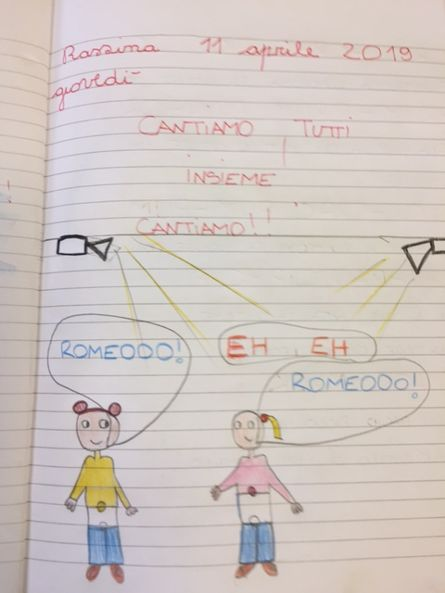 Rassina 11 aprile 2019
giovedì
CANTIAMO TUTTI
INSIEME
CANTIAMO!!
ROMEOOO!
EH EH
ROMEOOO!